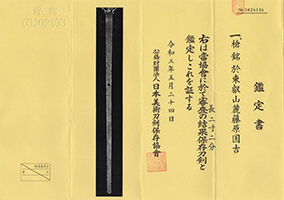 鑑定書
一、槍 銘 於東叡山麓藤原国吉
長 二寸二分
右は當協會に於て審査の結果保存刀剣と
鑑定しこれを証する
令和三年五月二十四日
公益財団法人日本美術刀剣保存協會